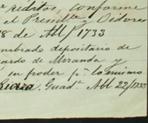 reditos, conforme
el Presidte y Oidores
8 de Abl/1733
nombrado depositario de
ardo de Miranda y
en poder pa lo mismo
Guadª. Abl 22/1733